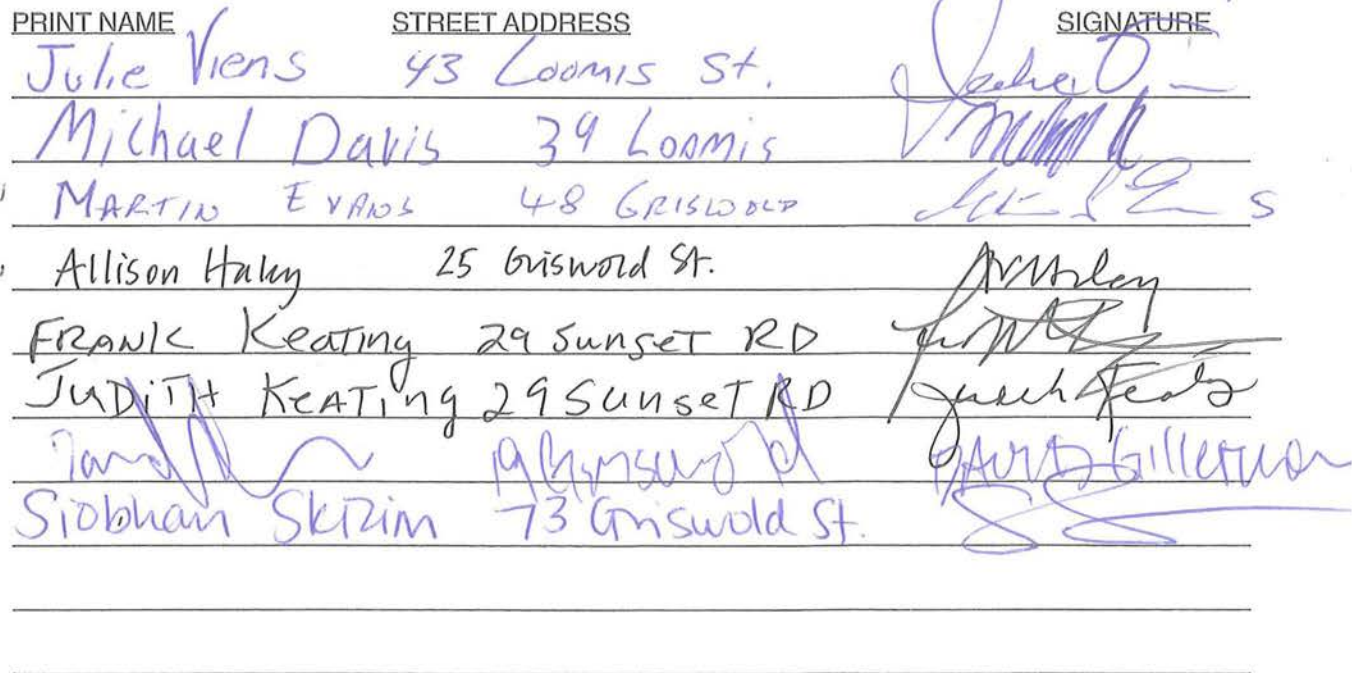 PRINT NAME STREET ADDRESS SIGNATURE
Julie Viens 43 Loomis St.
Michael Davis 39 Loomis
MARTIN EVANS 48 GRISWOLD
Allison Haley 25 Griswold St.
FRANK Keating 29 Sunset RD
JUDITH KEATING 29 Sunset RD
Griswold DAVID Gillerman
Siobhan Skrzim 73 Griswold St.